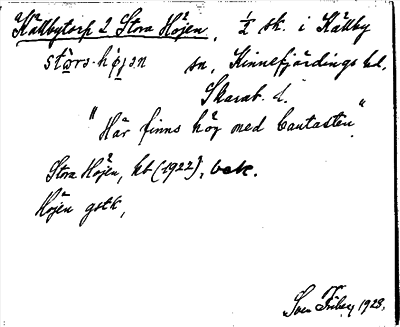 Källbytorp 2 Stora Höjen, ½ sk. i Källby
sn, Kinnefjärdings hd.
Skarab. l.
"Här finns hög med bautasten"
Stora Höjen, hb (1922), bok.
Höjen gstk,
Sven Friberg 1923.